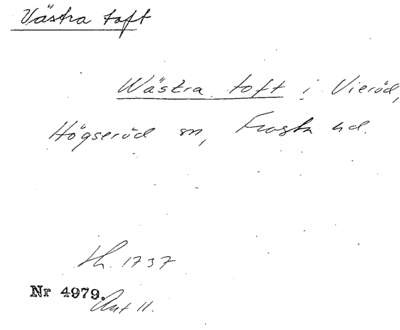 Västra toft
Wästra toft i Vieröd,
Högseröd sn, Frosta hd.
Lh. 1737
Nr 4979. Ant 11.